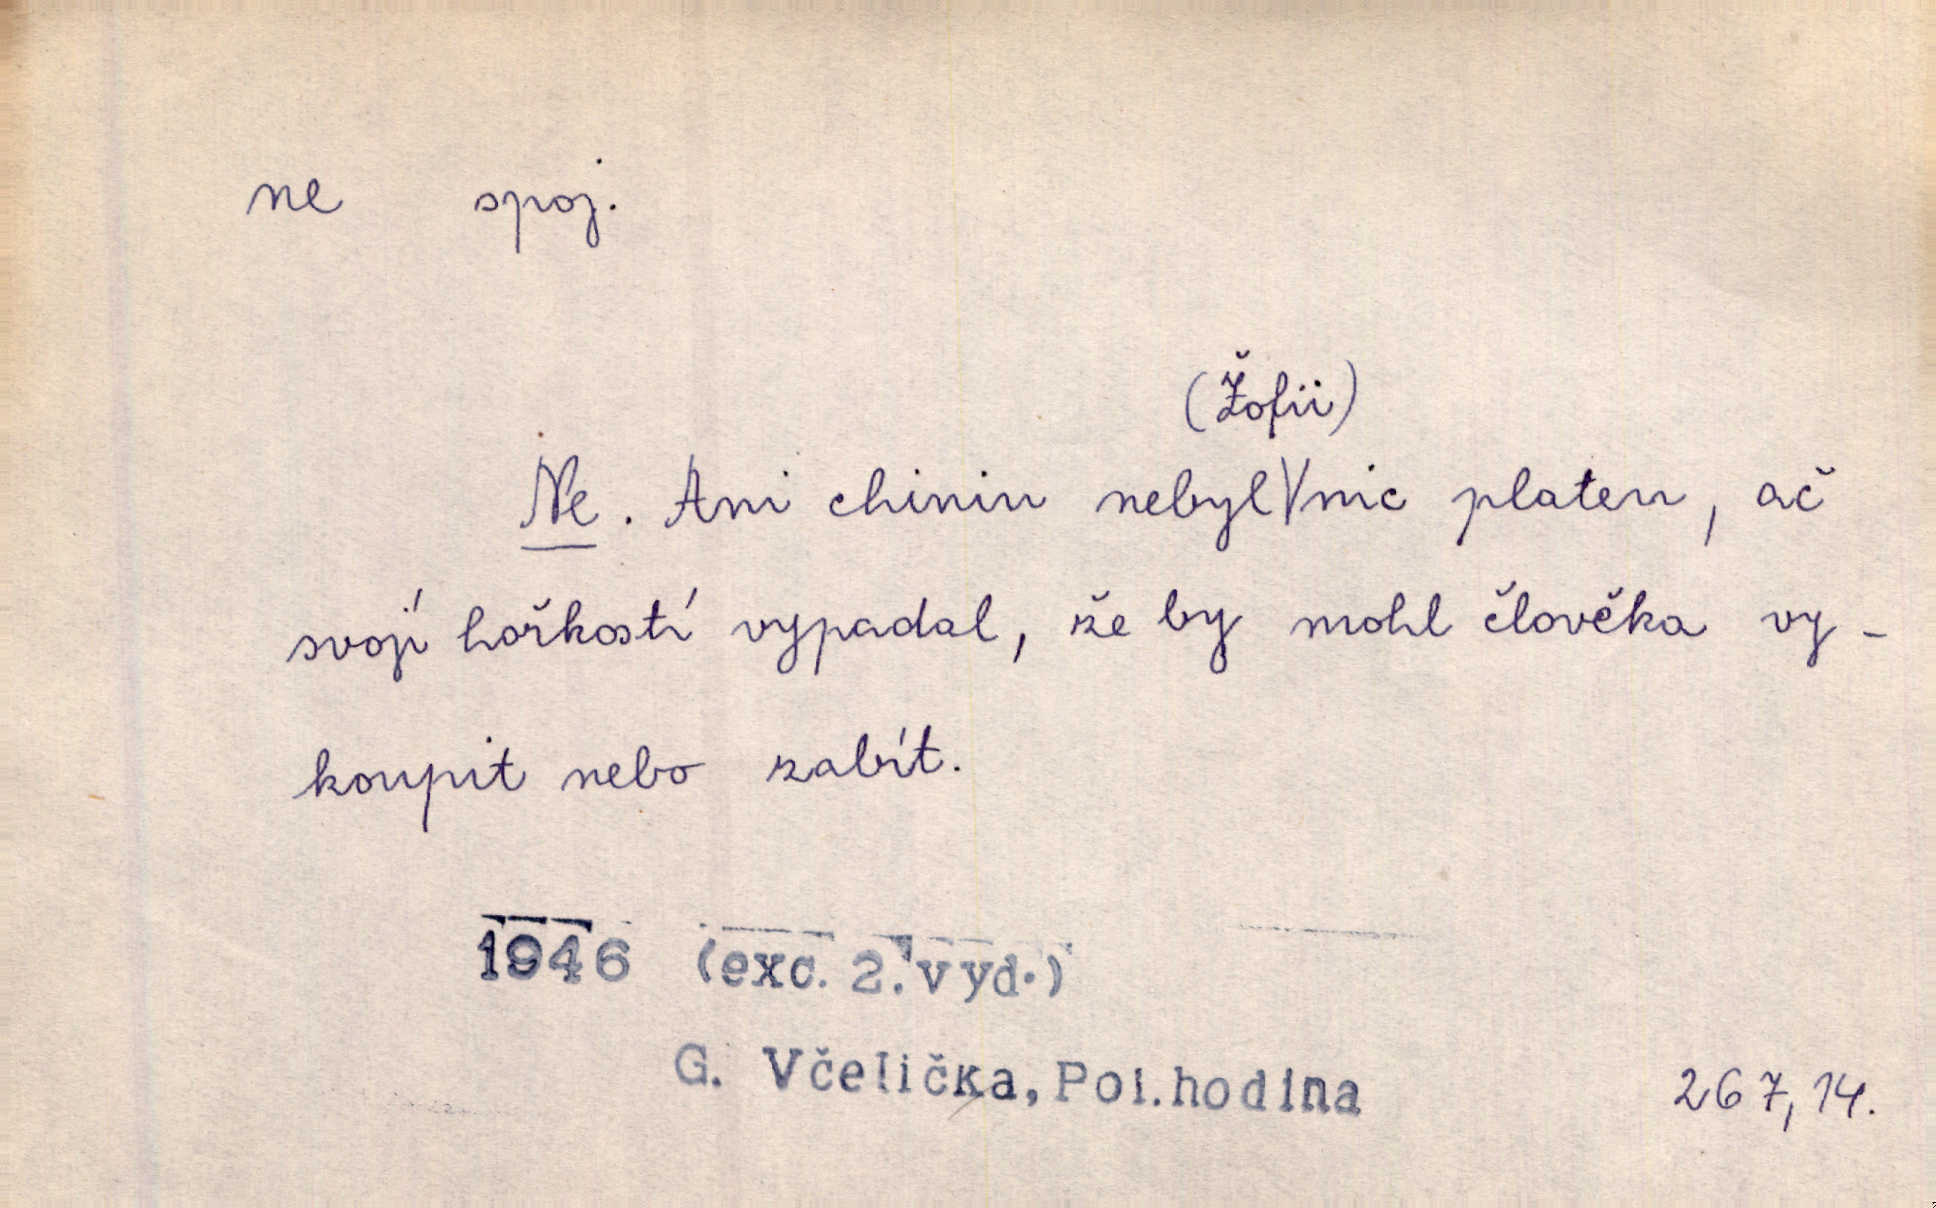 ne spoj.
(Žofii)
Ne. Ani chinin nebyl\/nic platen, ač
svojí hořkostí vypadal, že by mohl člověka vy-
koupit nebo zabít.
1946 (exc. 2. vyd.)
G. Včelička, Pol. hodina
267,14.